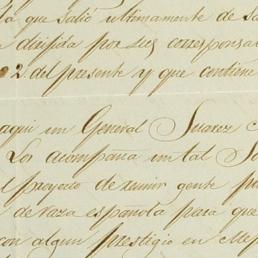 la que salió ultimamente de Sa
dirijida por sus corresponsa
2. del presente y que contiene
aqui un General Suarez
Los acompaña un tal So
l proyecto de reunir gente pa
de raza española para que
con algun prestigio en Mej